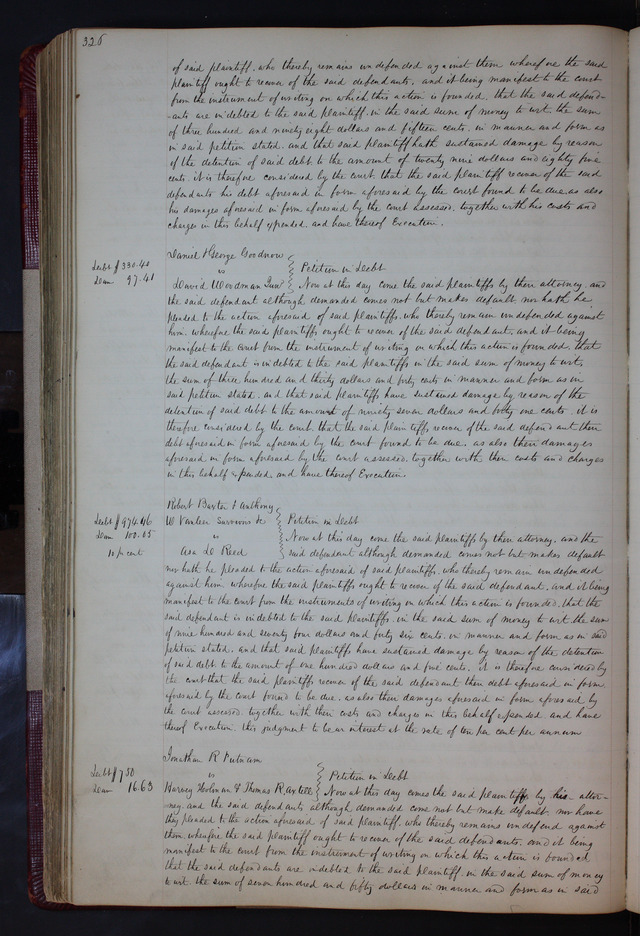 326
of said plaintiff, who thereby remains undefended against them wherefore the said
plaintiff ought to recover of the said defendants. and it being manifest to the court
from the instrument of writing on which this action is founded. that the said defend-
-ants are indebted to the said plaintiff. in the said sum of money to wit. the sum
of three hundred and ninety eight dollars and fifteen cents. in manner and form as
in said petition stated. and that said plaintiff hath sustained damage by reason
of the detention of said debt. to the amount of twenty nine dollars and eighty five
cents it is therefore considered by the court. that the said plaintiff recover of the said
defendants his debt aforesaid in form aforesaid by the court found to be due. as also
his damages aforesaid in form aforesaid by the court assessed. together with his costs and
charges in this behalf expended. and have thereof Execution.
Daniel & George Goodnow
Debt $330.40
vs Petition in Debt
Dam 97.41
David Woodman Junr Now at this day come the said plaintiffs by their attorney. and
the said defendant although demanded comes not but makes default nor hath he
pleaded to the action aforesaid of said plaintiffs. who thereby remain undefended against
him. wherefore the said plaintiffs ought to recover of the said defendant. and it being
manifest to the court from the instrument of writing on which this action is founded. that
the said defendant is indebted to the said plaintiffs in the said sum of money to wit,
the sum of three hundred and thirty dollars and forty cents in manner and form as in
said petition stated. and that said plaintiffs have sustained damage by reason of the
detention of said debt to the amount of ninety seven dollars and forty one cents. it is
therefore considered by the court. that the said plaintiffs recover of the said defendant their
debt aforesaid in form aforesaid by the court found to be due. as also their damages
aforesaid in form aforesaid by the court assessed. together with their costs and charges
in this behalf expended. and have thereof Execution.
Robert Baxter & Anthony
Debt $974.46
W Survivors &c Petition in Debt
Dam 100.05
vs Now at this day come the said plaintiffs by their attorney. and the
10 p cent
Asa Reed said defendant although demanded comes not but makes default
nor hath he pleaded to the action aforesaid of said plaintiffs. who thereby remain undefended
against him wherefore the said plaintiffs ought to recover of the said defendant. and it being
manifest to the court from the instruments of writing on which this action is founded. that the
said defendant is indebted to the said plaintiffs. in the said sum of money to wit the sum
of nine hundred and seventy four dollars and forty six cents. in manner and form as in said
petition stated. and that said plaintiffs have sustained damage by reason of the detention
of said debt to the amount of one hundred dollars and five cents. it is therefore considered by
the court that the said plaintiffs recover of the said defendant their debt aforesaid in form
aforesaid by the court found to be due. as also their damages aforesaid in form aforesaid by
the court assessed. together with their costs and charges in this behalf expended and have
thereof Execution. this judgment to bear interest at the rate of ten per cent per annum
Jonathan R Putnam
Debt $750
vs Petition in Debt
Dam 16.63
Harvey & Thomas R Axtell Now at this day comes the said plaintiff by his attor-
ney. and the said defendants although demanded come not but make default, nor have
they pleaded to the action aforesaid of said plaintiff. who thereby remains undefend against
them. wherefore the said plaintiff ought to recover of the said defendants. and it being
manifest to the court from the instrument of writing on which this action is founded
that the said defendants are indebted to the said plaintiff. in the said sum of money
to wit. the sum of seven hundred and fifty dollars in manner and form as in said